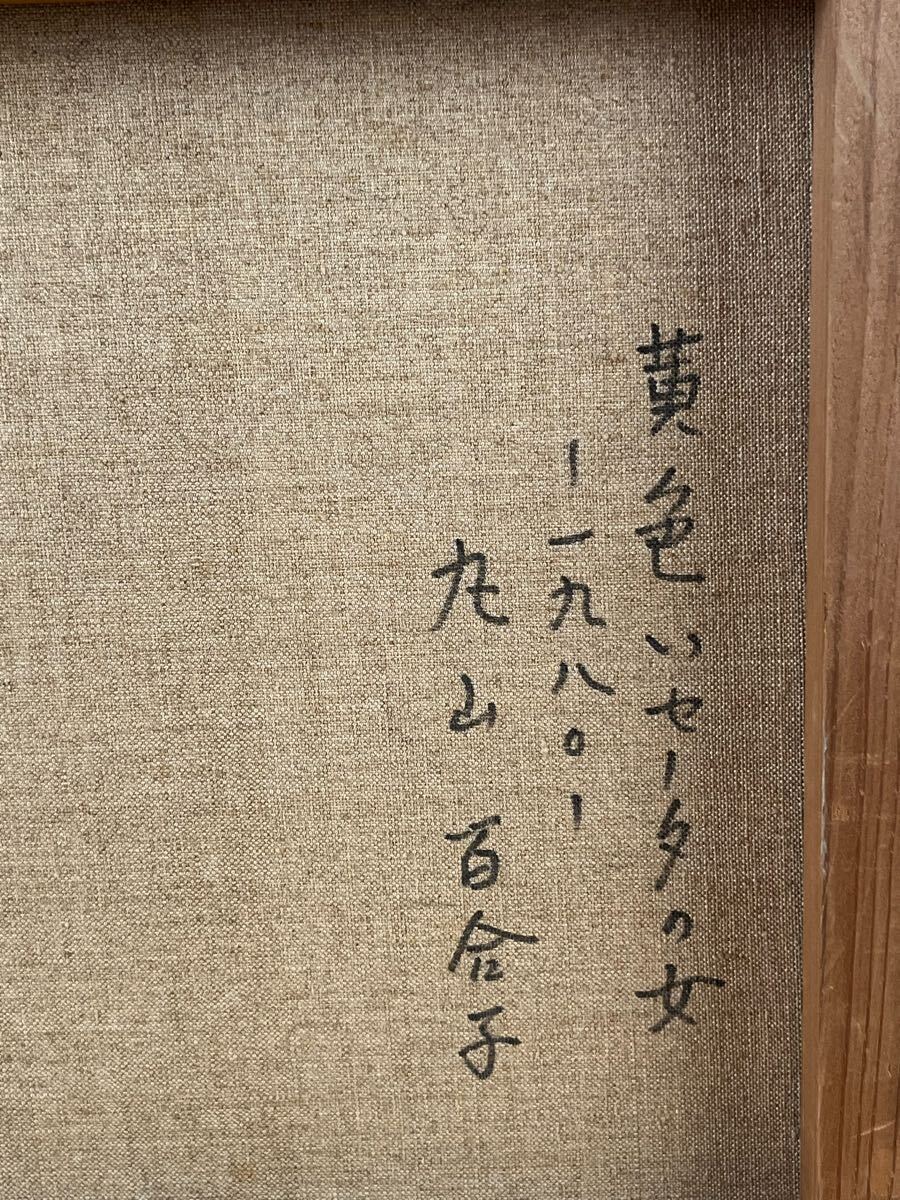 黄色いセータの女
－一九八〇－
丸山百合子